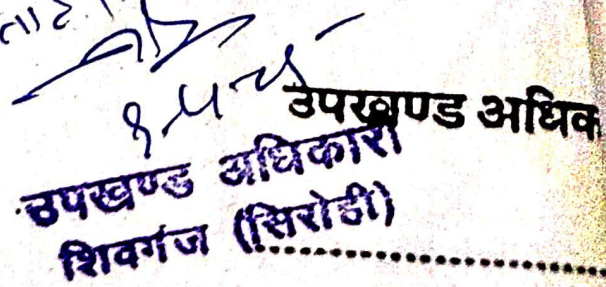 उपखण्ड अधिक
उपखण्ड अधिकारी
शिवगंज (सिरोही)